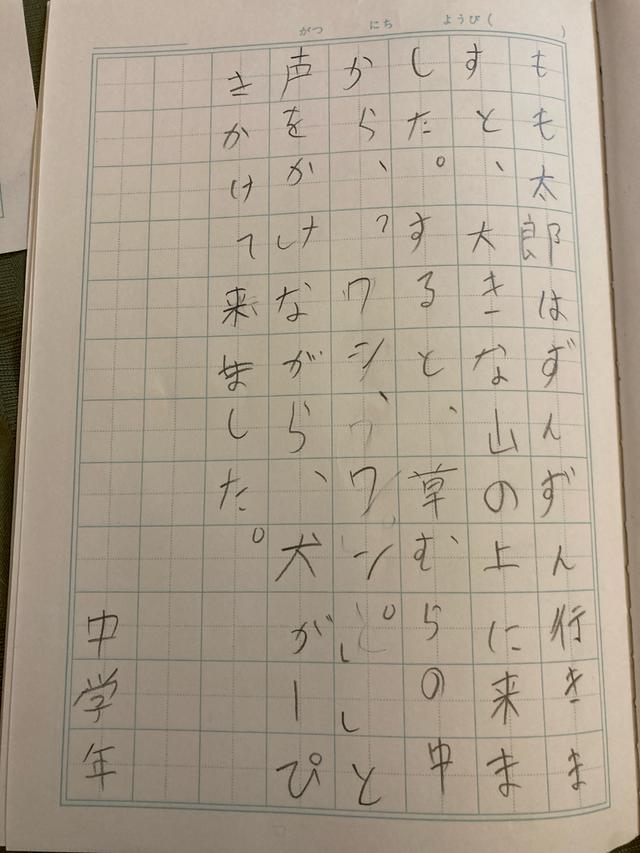 がつ にち ようび( )
もも太郎はずんずん行きま
すと、大きな山の上に来ま
した。すると、草むらの中
から、「ワン、ワン。」と
声をかけながら、犬が一ぴ
きかけて来ました。
中学年